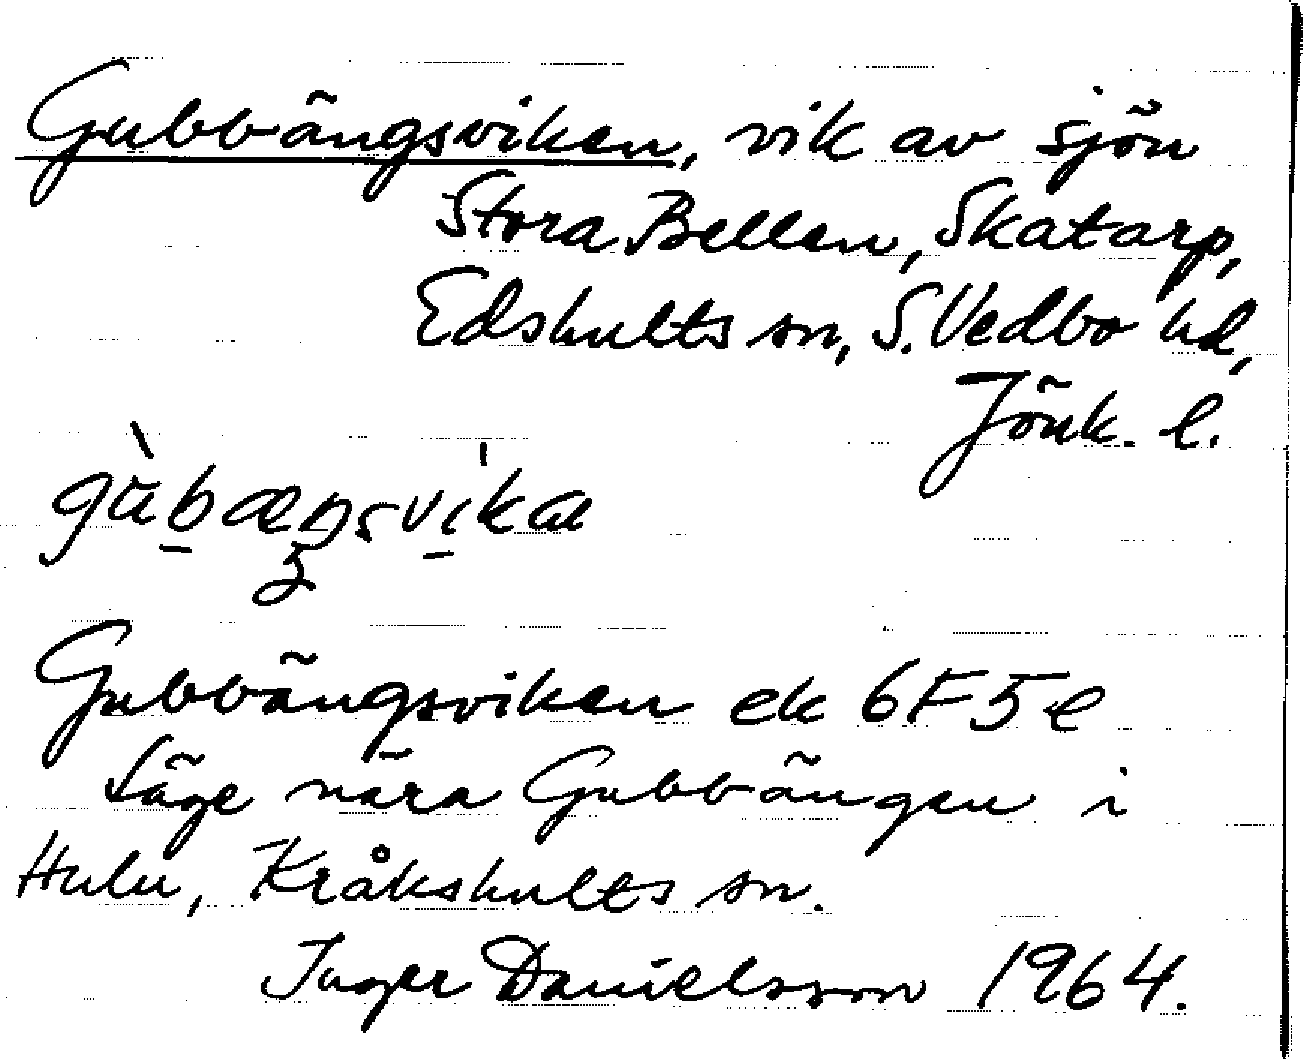 Gubbängsviken, vik av sjön
Stora Bellen, Skatarp,
Edshults sn, S. Vedbo hd,
Jönk. l.
Gubbängsviken ek 6F5e
Läge nära Gubbängen i
Hulu, Kråkshults sn.
Inger Danielsson 1964.